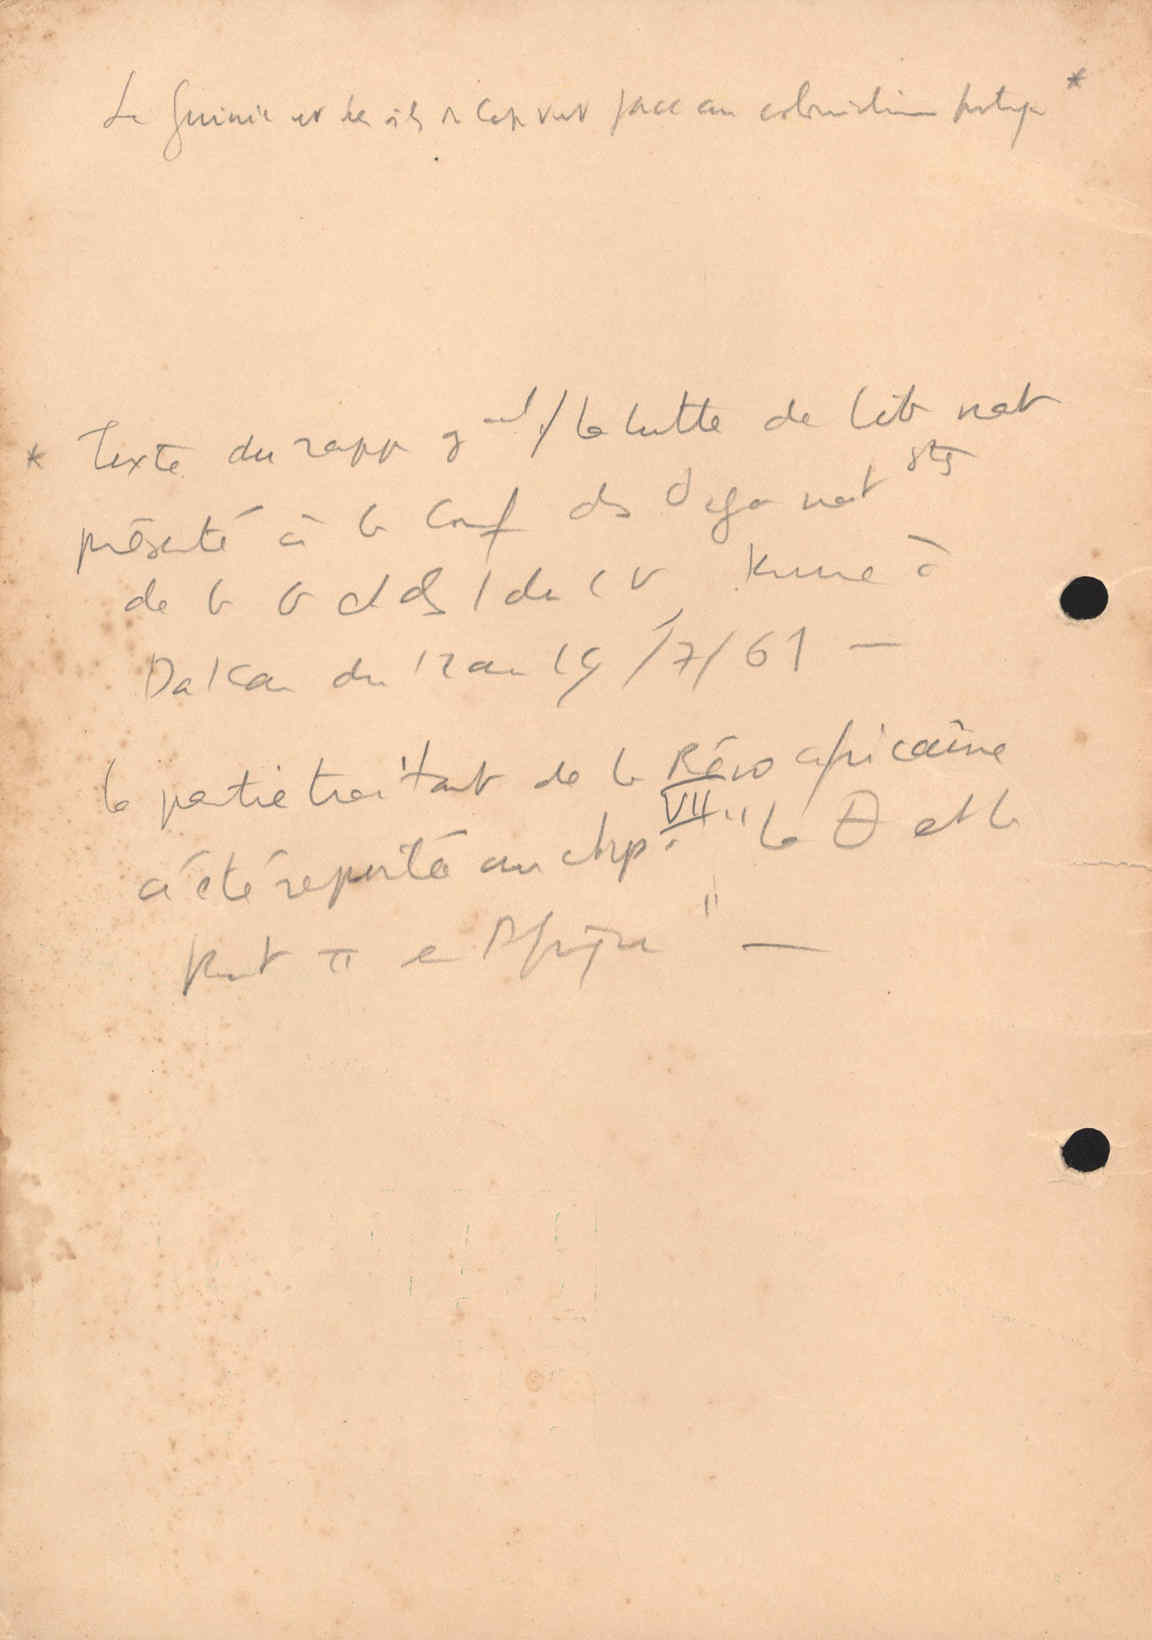 La Guinée et les îles du Cap vert face au colonialisme portugais *
* Texte du rapp gal / la lutte de lib nat
présenté à la Conf ds Orga nat stes
de la G et ds I du C V, réunie à
Dakar du 12 au 14/7/61 —
la partie traitant de la Révo africaine
a été reportée au chap. VII "la θ et la
π en Afrique" —